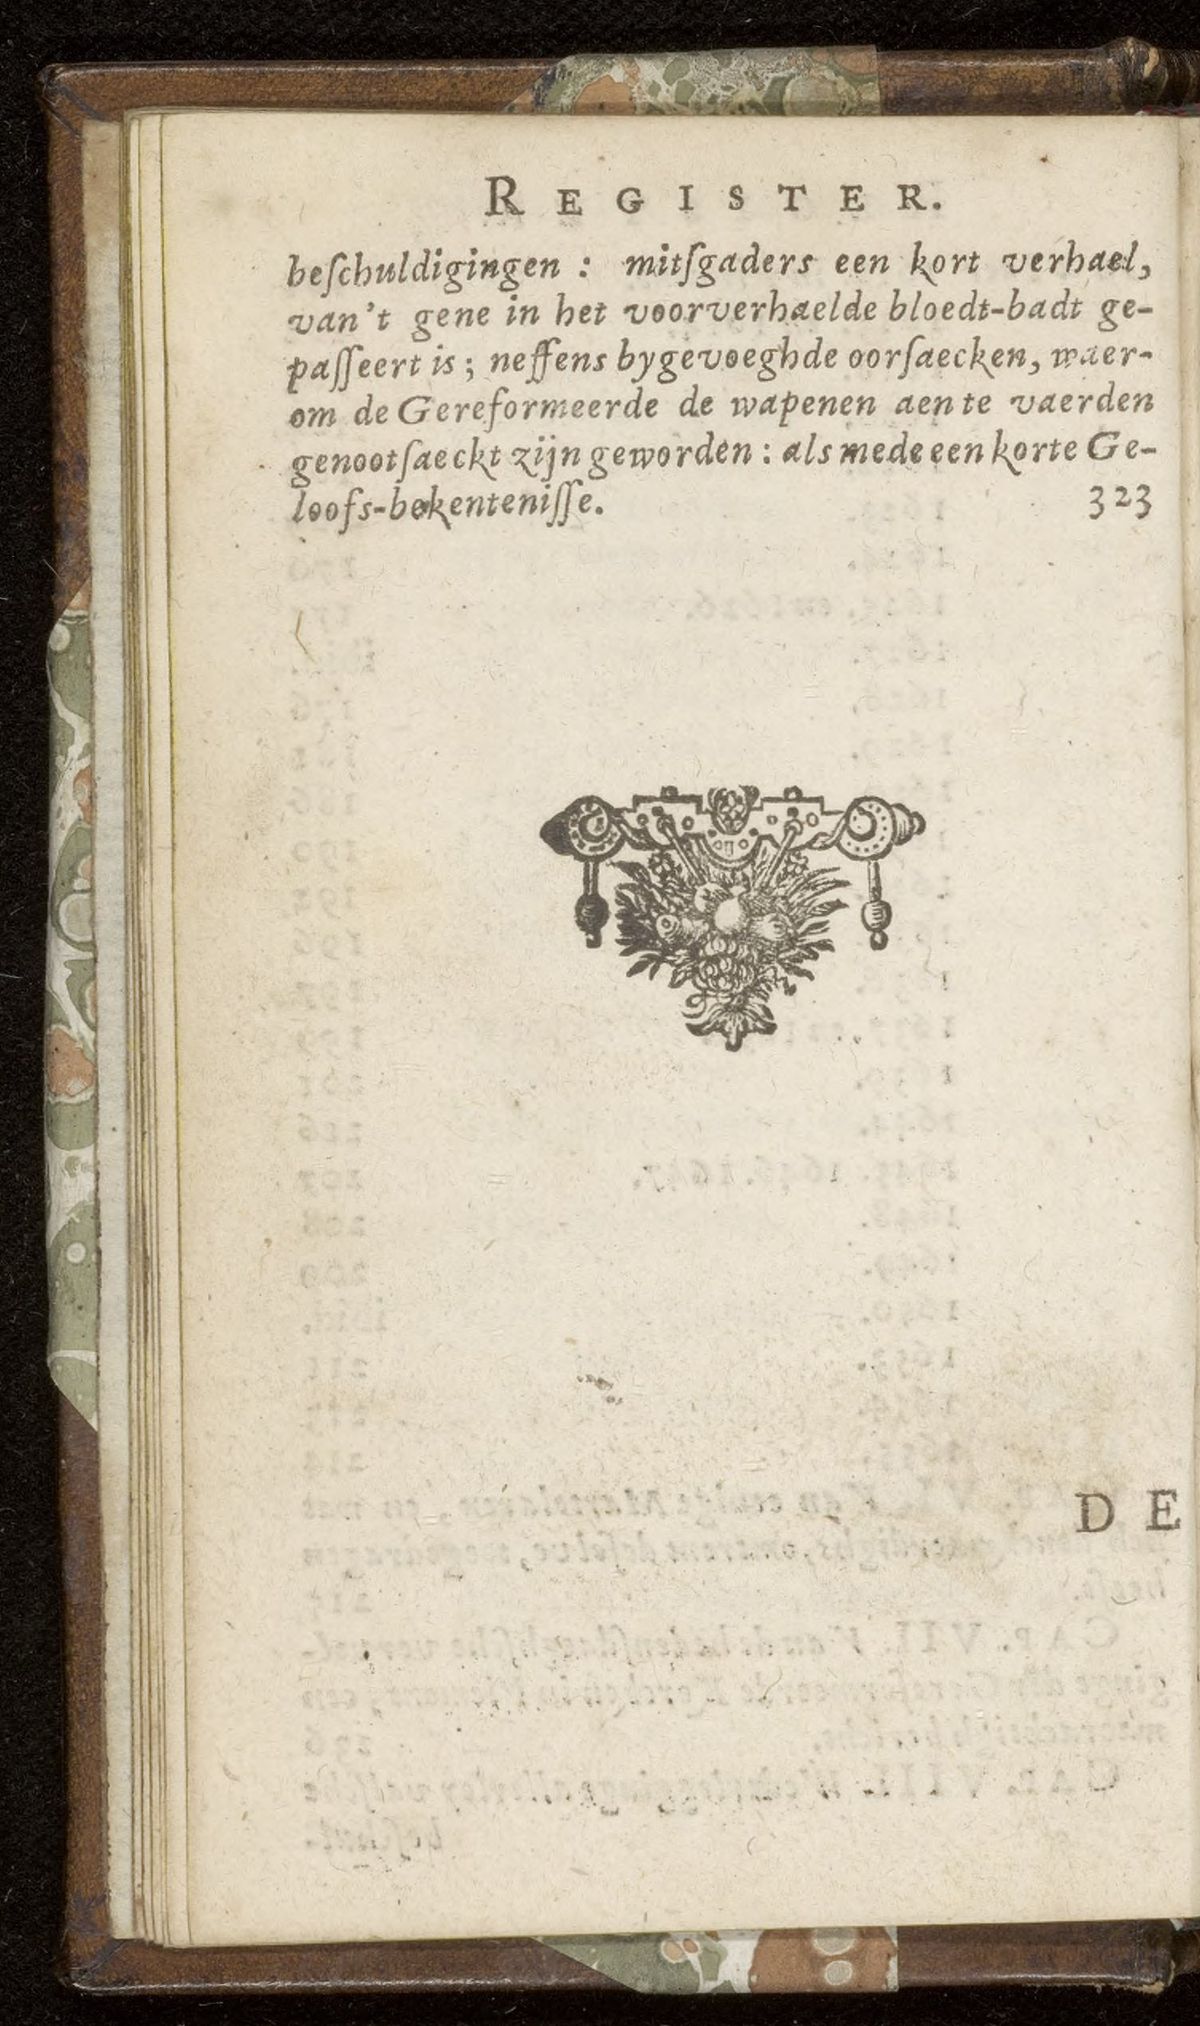 REGISTER.
beſchuldigingen : mitſgaders een kort verhael,
van't gene in het voorverhaelde bloedt-badt ge-
paſſeert is ; neffens bygevoeghde oorſaecken, waer-
om de Gereformeerde de wapenen aen te vaerden
genootſaeckt zijn geworden : als mede een korte Ge-
loofs-bekenteniſſe. 323
DE